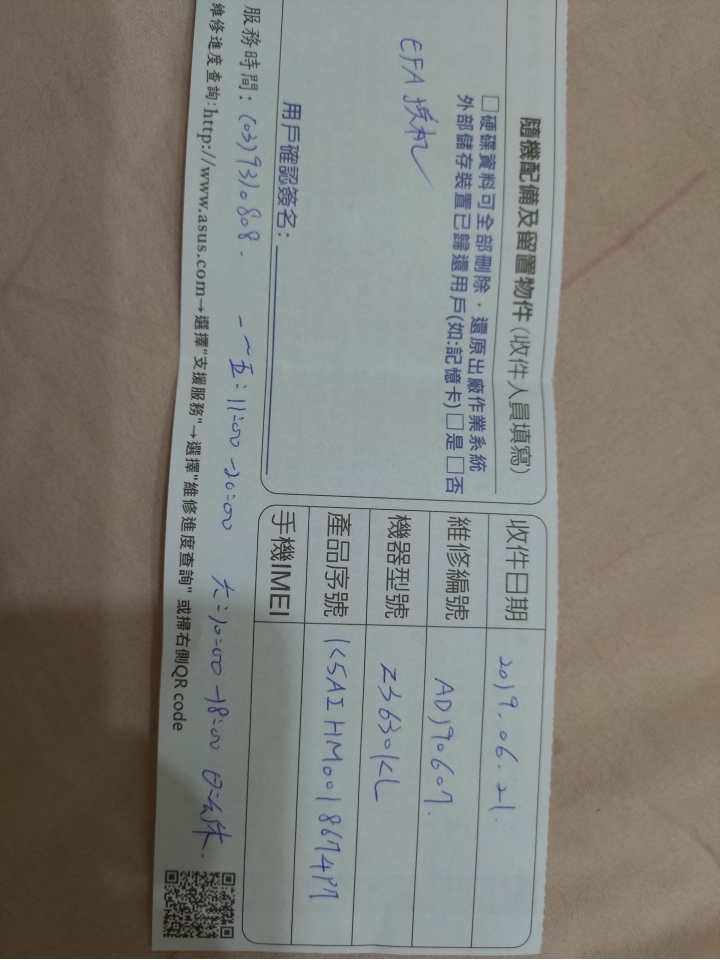 隨機配備及留置物件(收件人員填寫)
□硬碟資料可全部刪除，還原出廠作業系統
外部儲存裝置已歸還用戶(如:記憶卡)□是□否
EFA 換机
用戶確認簽名:
收件日期 2019.06.21.
維修編號 AD190607.
機器型號 ZS630KL
產品序號
手機IMEI
服務時間: (03)9310808. 一~五:11:00-20:00 六:10:00-18:00 日:公休.
維修進度查詢:http://www.asus.com→選擇"支援服務"→選擇"維修進度查詢" 或掃右側QR code